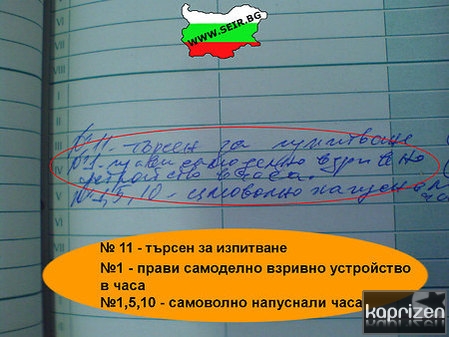 WWW.SEIR.BG
VI
VII
VIII
I
II
III
№11 - търсен за изпитване
№1 - прави самоделно взривно
устройство в часа.
IV
V
№1,5,10 - самоволно напуснали
VI
VII
№ 11 - търсен за изпитване
№1 - прави самоделно взривно устройство
в часа
№1,5,10 - самоволно напуснали часа
kaprizen